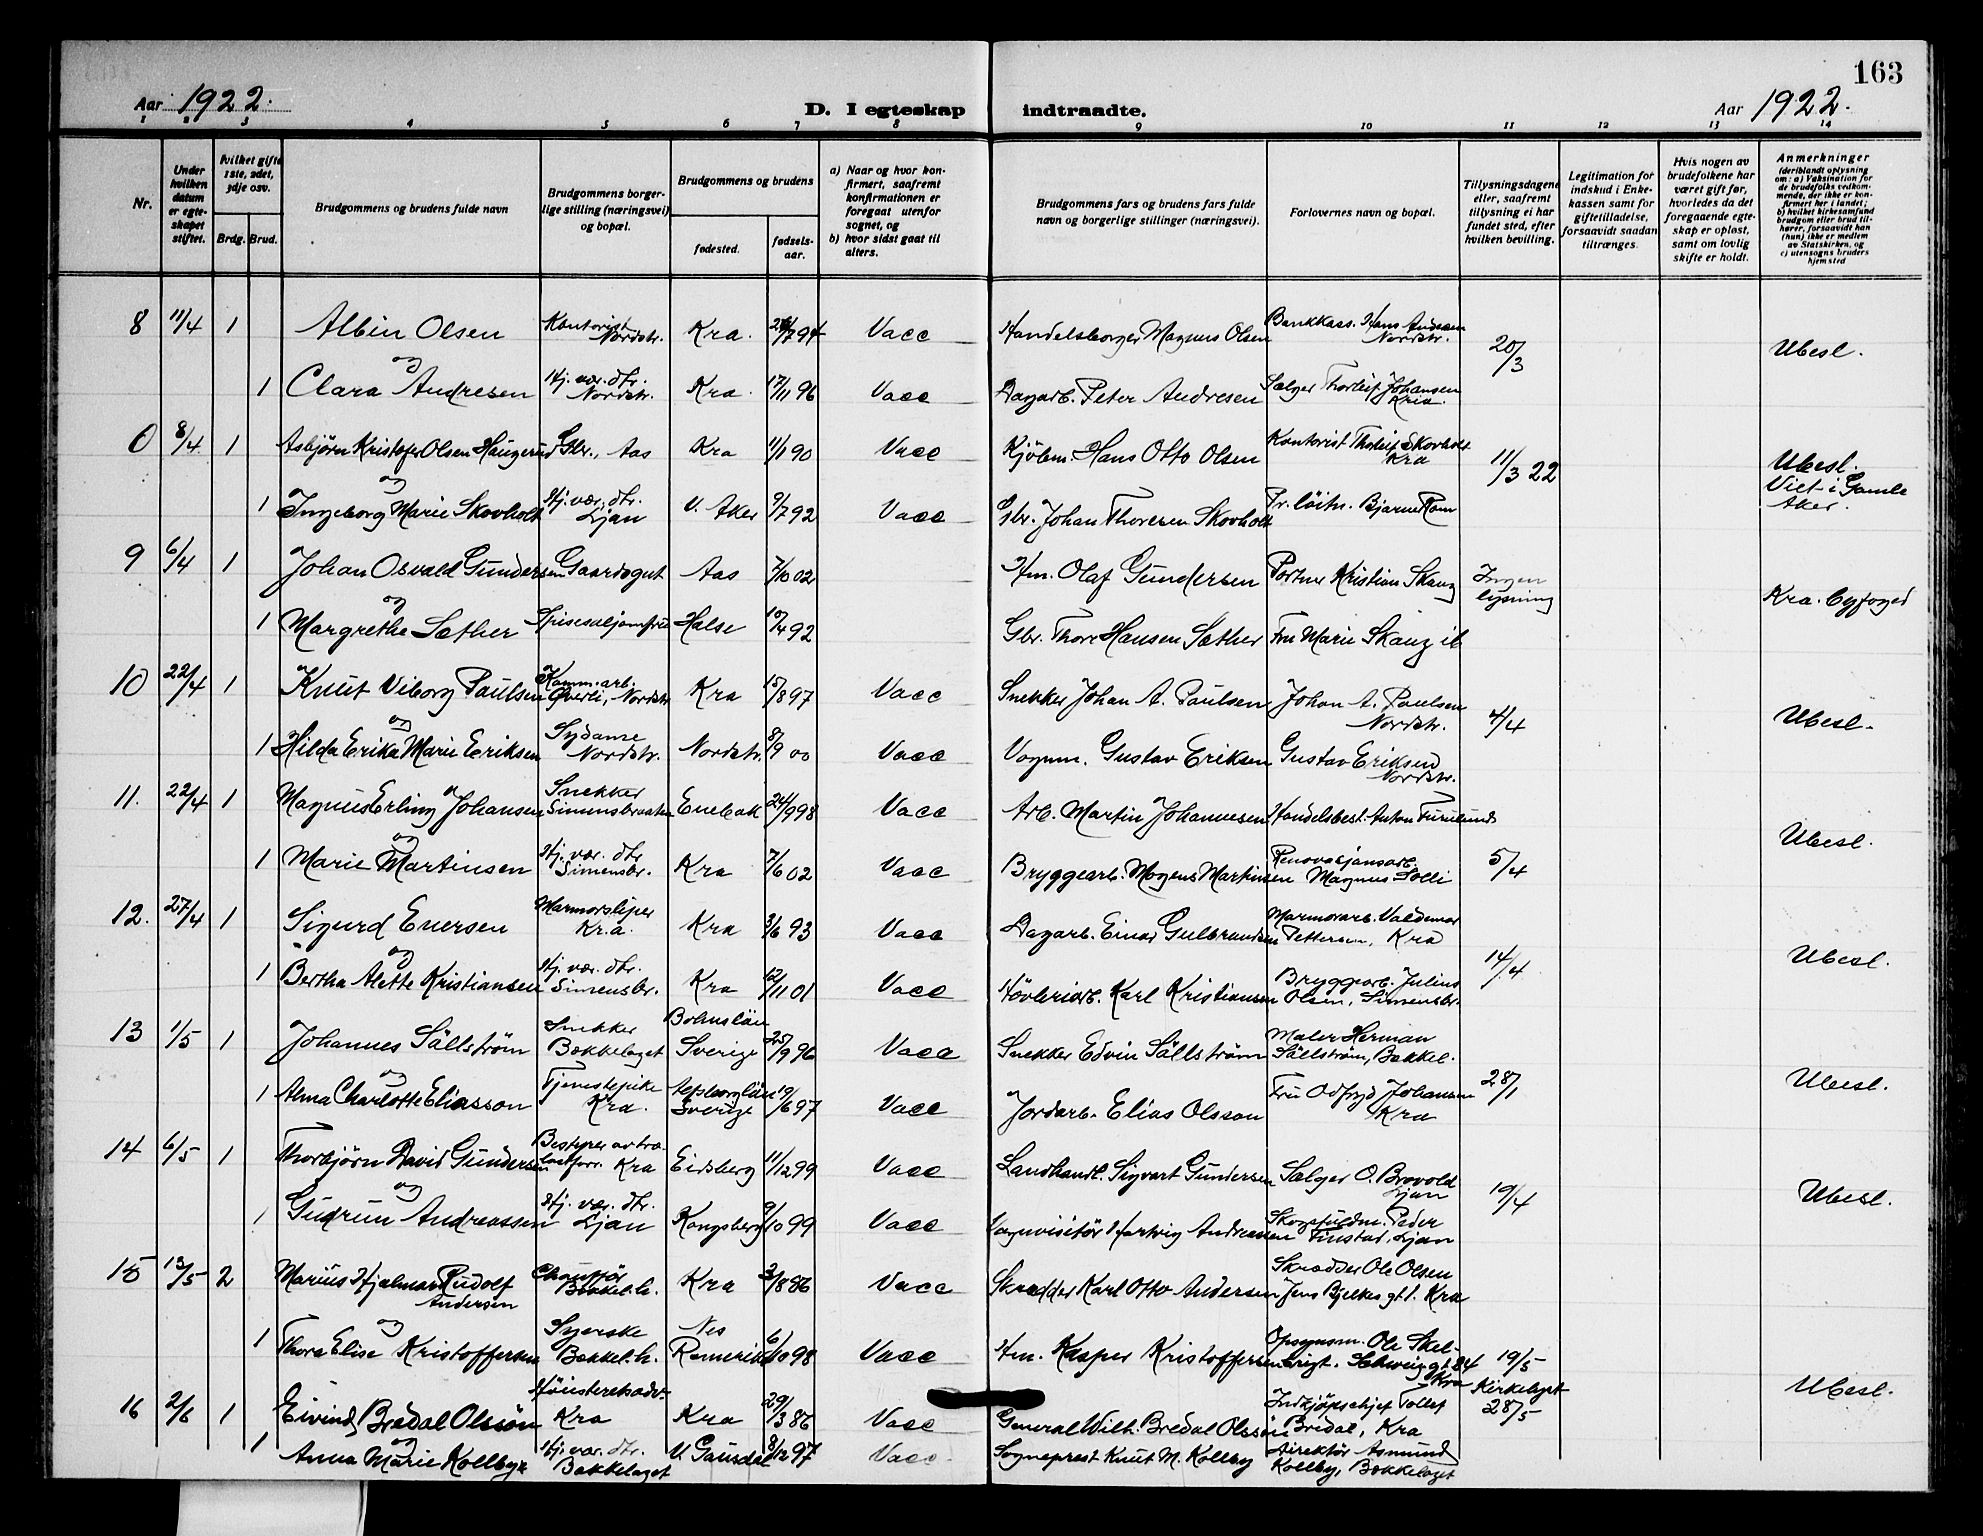 163
Aar 1922. D. I egteskap indtraadte. Aar 1922.
1 2 3 4 5 6 7 8 9 10 11 12 13 14
Nr.
Under hvilken datum er egteskapet stiftet.
Hvilket gifte 1ste, 2det, 3dje osv.
Brdg. Brud.
Brudgommens og brudens fulde navn
Brudgommens borgerlige stilling (næringsvei) og bopæl.
Brudgommens og brudens
fødested. fødselsaar.
a) Naar og hvor konfirmert, saafremt konfirmationen er foregaat utenfor sognet, og
b) hvor sidst gaat til alters.
Brudgommens fars og brudens fars fulde navn og borgerlige stillinger (næringsvei).
Forlovernes navn og bopæl.
Tillysningsdagene eller, saafremt tillysning ei har fundet sted, efter hvilken bevilling.
Legitimation for indskud i Enkekassen samt for giftetilladelse, forsaavidt saadan tiltrænges.
Hvis nogen av brudefolkene har været gift før, hvorledes da det foregaaende egteskap er opløst, samt om lovlig skifte er holdt.
Anmerkninger (deriblandt oplysning om: a) Vaksination for de brudefolks vedkommende, der ikke er konfirmert her i landet; b) hvilket kirkesamfund brudgom eller brud tilhører, forsaavidt han (hun) ikke er medlem av Statskirken, og c) utensogns bruders hjemsted
8 11/4 1 Albin Olsen Kontorist Nordstr. Kra. 7 94 Vacc Handelsborger Magnus Olsen Bankkass. Hans Andresen Nordstr. 20/3 Ubesl.
og
1 Clara Andresen Hj. vær. dtr. Nordstr. Kra. 17/11 96 Vacc Dagarb. Peter Andresen Sælger Thorleif Johansen Kria.
0 8/4 1 Asbjørn Kristofer Olsen Haugerud Gbr., Aas Kra 11/1 90 Vacc Kjøbm. Hans Otto Olsen Kontorist Thorleif Skovholt Kra 11/3 22 Ubesl. Viet i Gamle Aker.
og
1 Ingeborg Marie Skovholt Hj. vær. dtr. Ljan V. Aker 9/7 92 Vacc Gbr. Johan Thoresen Skovholt Pr. løitn. Bjarne Rom
9 6/4 1 Johan Osvald Gundersen Gaardsgut Aas 7/10 02 Hm. Olaf Gundersen Portner Kristian Skaug Ingen lysning Kra. byfoged
og
1 Margrethe Sæther Spisesaljomfru Halse 10/4 92 Gbr. Thore Hansen Sæther Fru Marie Skaug ib
10 22/4 1 Knut Viborg Paulsen Komm.arb. Øverli, Nordstr Kra 15/8 97 Vacc Snekker Johan A. Paulsen Johan A. Paulsen Nordstr. 4/4 Ubesl.
og
1 Hilda Erika Marie Eriksen Sydame Nordstr. Nordstr. 8/9 00 Vacc Vognm. Gustav Eriksen Gustav Eriksen Nordstr.
11. 22/4 1 Magnus Erling Johansen Snekker Simensbraaten Enebak 24/9 98 Vacc Arb. Martin Johannesen Handelsbest. Anton Furulund 5/4 Ubesl.
og
1 Marie Martinsen Hj. vær. dtr Simensbr. Kra 7/6 02 Vacc Bryggearb. Mogens Martinsen Renovasjonsarb. Magnus Solli
12. 27/4 1 Sigurd Enersen Marmorsliper Kr.a. Kra 3/6 93 Vacc Dagarb. Einar Gulbrandsen Marmorarb. Valdemar Pettersen, Kra 14/4 Ubesl.
og
1 Bertha Alette Kristiansen Hj. vær. dtr. Simensbr. Kra 12/11 01 Vacc Høvleriarb. Karl Kristiansen Bryggearb. Julius Olsen, Simensbr.
13 1/5 1 Johannes Sällström Snekker Bækkelaget Bohuslän Sverige 25/9 96 Vacc Snekker Edvin Sällström Maler Herman Sällström, Bækkel. 28/1 Ubesl.
og
1 Alma Charlotte Eliasson Tjenestepike Kra. Sverige 19/6 97 Vacc Jordarb. Elias Olsson Fru Odfryd Johansen Kra
14 6/5 1 Thorbjørn David Gundersen Bestyrer av Kra Eidsberg 11/12 99 Vacc Landhandl. Sigvart Gundersen Sælger O. Brovold Ljan 19/4 Ubesl.
og
1 Gudrun Andreassen Hj. vær. dtr. Ljan Kongsberg 9/10 99 Vacc Vognvisitör Hartvig Andreassen Skogfuldm. Peder Finstad, Ljan
15 13/5 2 Marius Hjalmar Rudolf Andersen Chaufför Bækkel.h. Kra 3/8 86 Vacc Skrædder Karl Otto Andersen Skrædder Ole Olsen Jens Bjelkes gt 1. Kra
og
1 Thora Elise Kristoffersen Syerske Bækkel.h. Nes Romerike 6/10 98 Vacc Hm. Kasper Kristoffersen Opsynsm. Ole Schweig.gt. 84 Kra 19/5
16 2/6 1 Eivind Bredal Olssøn Høiesteretsadv. Kra Kra 29/3 86 Vacc General Wilh. Bredal Olssøn Indkjøpschef Tollef Bredal, Kra Kirkelyst 28/5 Ubesl.
og
1 Anna Marie Kollbye Hj. vær. dtr. Bækkelaget V. Gausdal 8/12 97 Vacc Sogneprest Knut M. Kolby Direktör Asmund Kollby, Bækkelaget